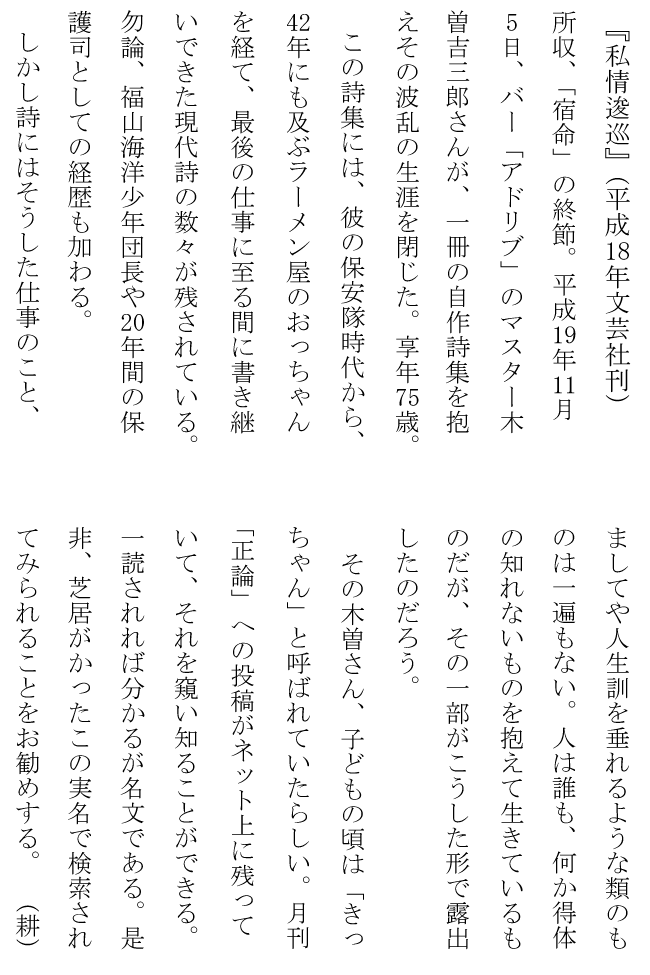 『私情逡巡』（平成18年文芸社刊）
所収、「宿命」の終節。平成19年11月
5日、バー「アドリブ」のマスター木
曽吉三郎さんが、一冊の自作詩集を抱
えその波乱の生涯を閉じた。享年75歳。
　この詩集には、彼の保安隊時代から、
42年にも及ぶラーメン屋のおっちゃん
を経て、最後の仕事に至る間に書き継
いできた現代詩の数々が残されている。
勿論、福山海洋少年団長や20年間の保
護司としての経歴も加わる。
　しかし詩にはそうした仕事のこと、
ましてや人生訓を垂れるような類のも
のは一遍もない。人は誰も、何か得体
の知れないものを抱えて生きているも
のだが、その一部がこうした形で露出
したのだろう。
　その木曽さん、子どもの頃は「きっ
ちゃん」と呼ばれていたらしい。月刊
「正論」への投稿がネット上に残って
いて、それを窺い知ることができる。
一読されれば分かるが名文である。是
非、芝居がかったこの実名で検索され
てみられることをお勧めする。　（耕）